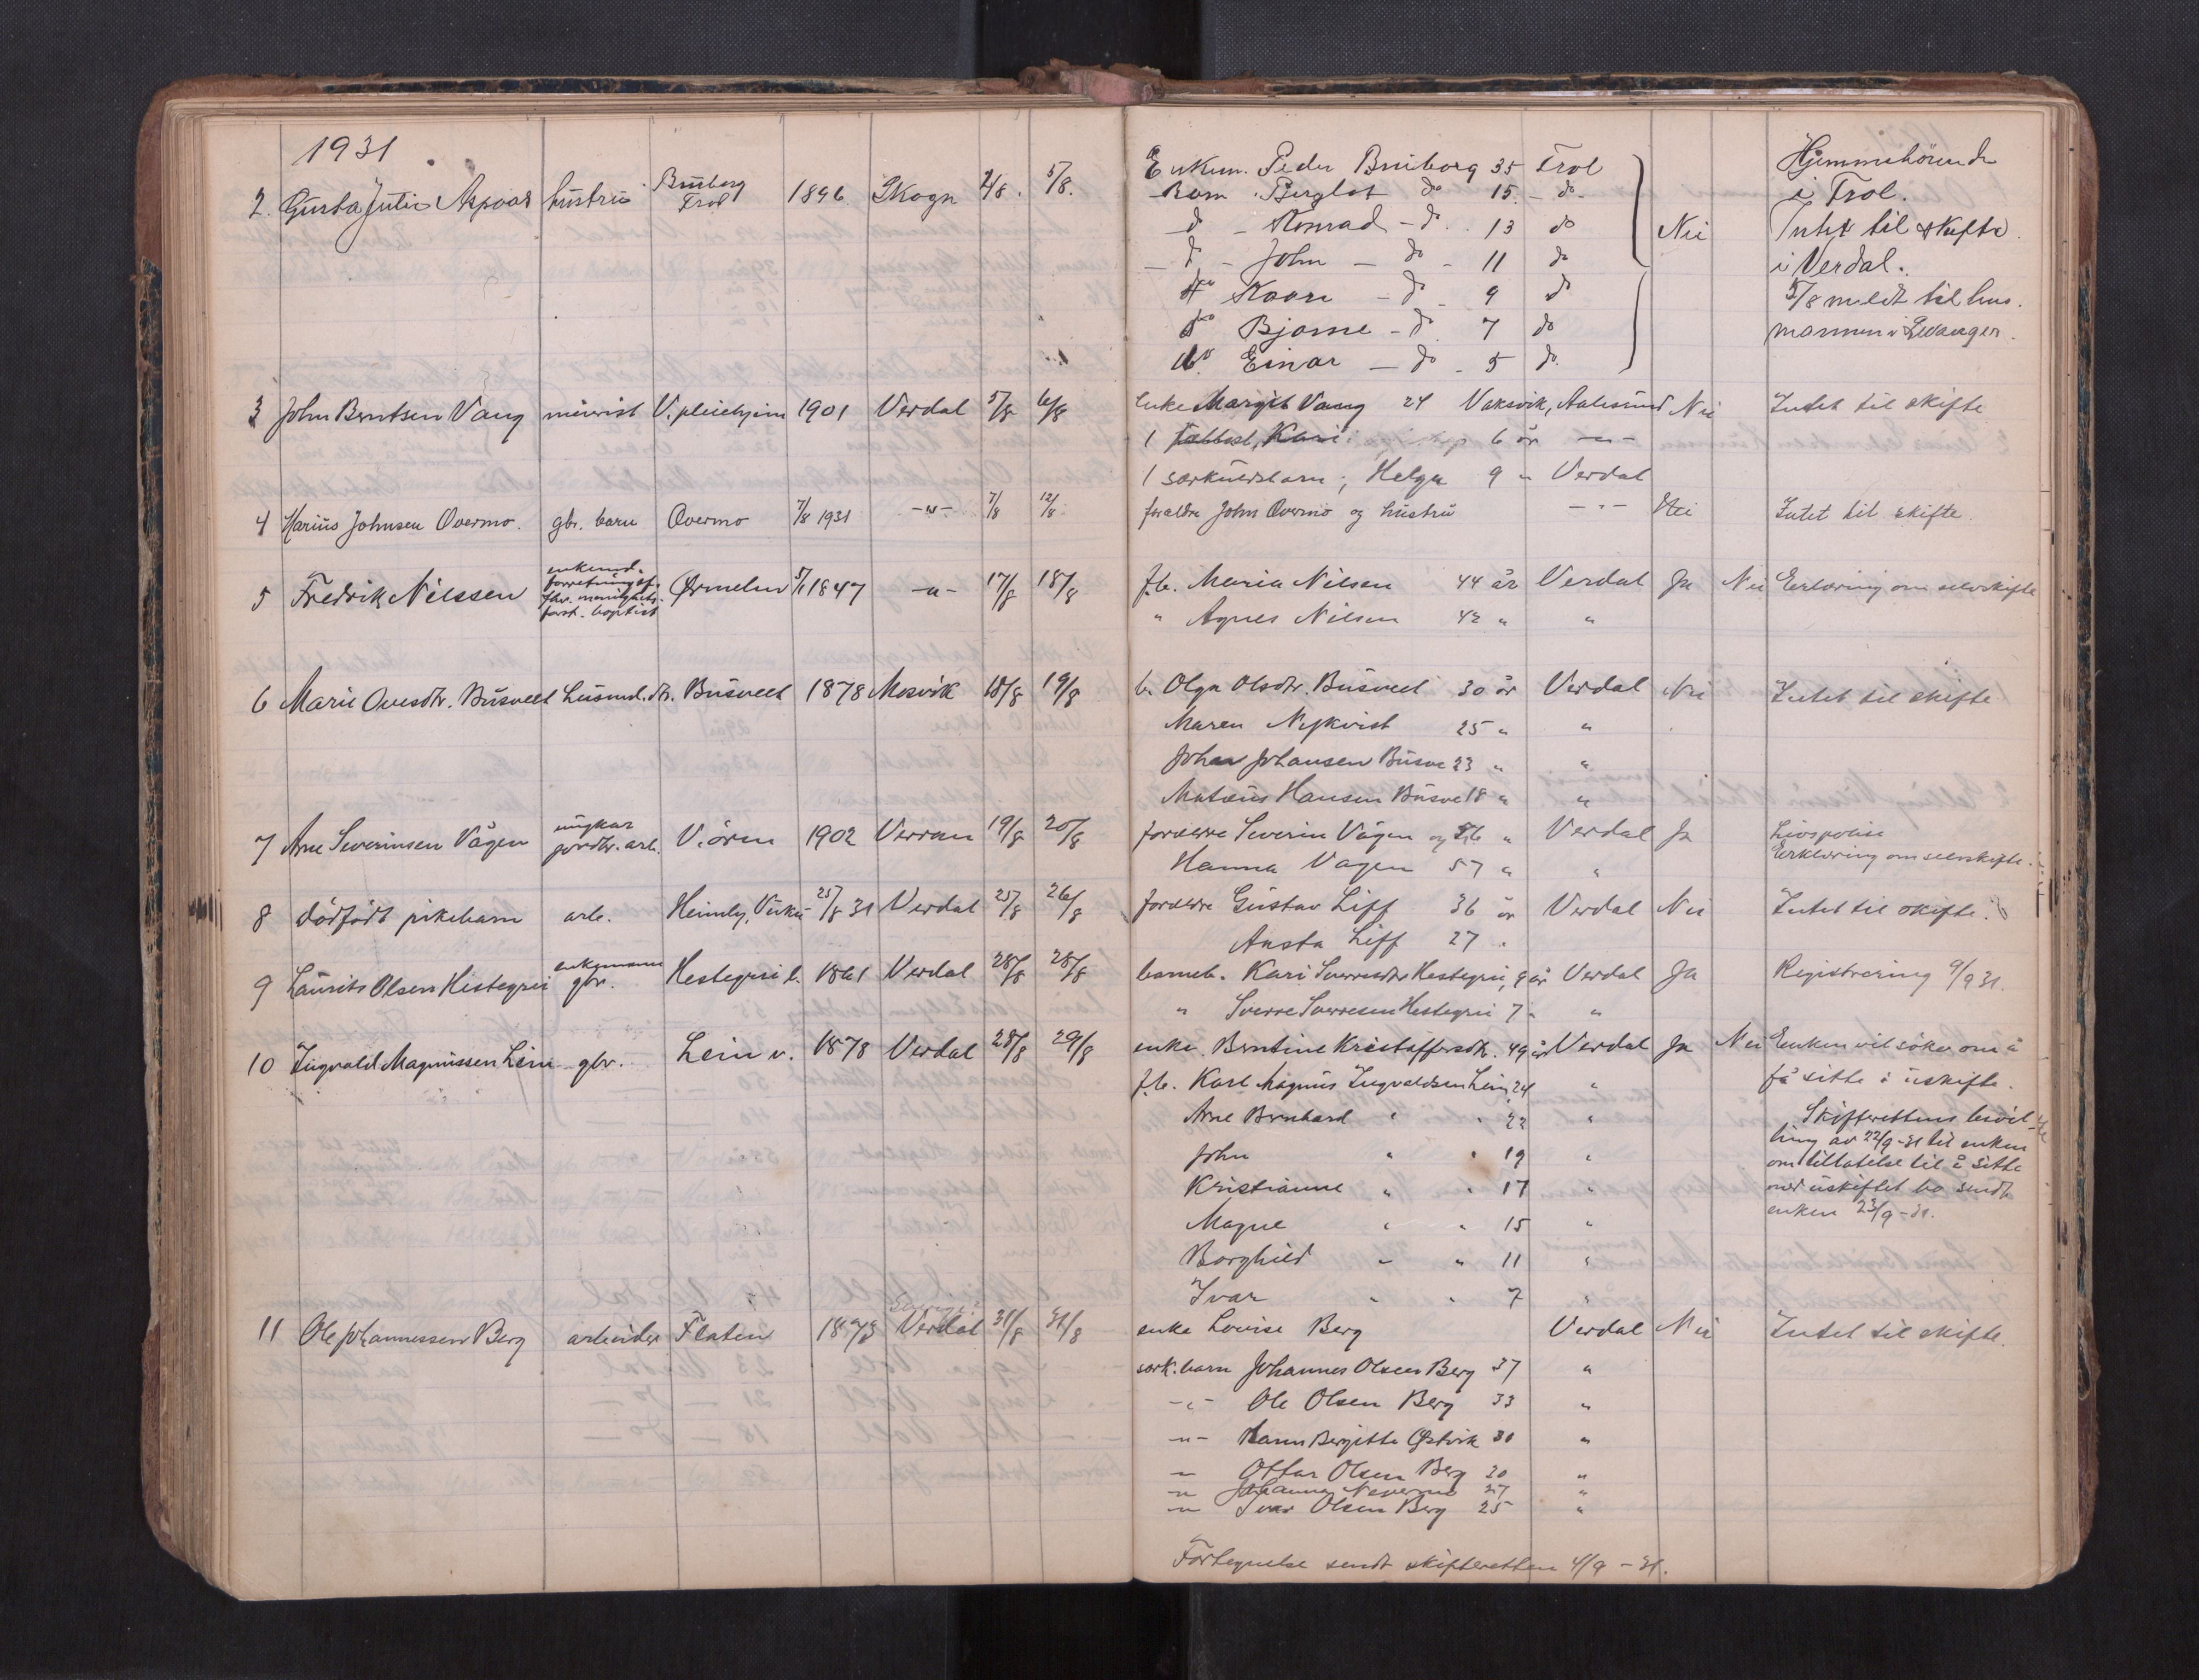 1931
2. Gusta Julie Aspaas hustru Buiborg Frol 1896 Skogn 4/8. 5/8.
Enkem. Peder Buiborg 35 Frol
Barn Bergliot do 15 - do -
do - Konrad - do 13 do
- do - John - do - 11 do
do Kaare - do - 9 do
do Bjarne - do 7 do
do Einar - do - 5 do
Nei
Hjemmehörende
i Frol.
Intet til skifte
i Verdal.
5/8 meldt til lens-
mannen i Levanger.
3 John Berntsen Vang meierist V. pleiehjem 1901 Verdal 5/8 6/8 Enke Margit Vang 24 Vaksvik, Aalesund Nei Intet til skifte
1 Kari 6 år -"-
1 særkuldsbarn; Helga 9 " Verdal
4 Marius Johnsen Overmo. gbr. barn Overmo 7/8 1931 -"- 7/8 12/8 foreldre John Overmo og hustru -"- Nei Intet til skifte.
5 Fredrik Nilssen enkemd. forretningsf. fhv. menighets- forst. baptist Ørmelen 5/1 1847 -"- 17/8 18/8 f.b. Maria Nilsen 44 år Verdal Ja Nei Erklæring om selvskifte
" Agnes Nilsen 42 " "
6 Marie Ovesdtr. Busveet husmd. dtr. Busveet 1878 Mosvik 18/8 19/8 b. Olga Olsdtr. Busveet 30 år Verdal Nei Intet til skifte
Maren Nykvist 25 " "
Johan Johansen Busve 23 " "
Matæus Hansen Busve 18 " "
7 Arne Severinsen Vågen ungkar jordbr. arb. V. ören 1902 Verran 19/8 20/8 foreldre Severin Vågen og 56 " Verdal Ja Livspolise
Hanna Vagen 57 " " Erklæring om selvskifte.
8 dödfödt pikebarn arb. Heimly, Vuku 25/8 31 Verdal 25/8 26/8 foreldre Gustav Liff 36 år Verdal Nei Intet til skifte.
Aasta Liff 27 "
9 Laurits Olsen Hestegrei enkemann gbr. Hestegrei l. 1861 Verdal 28/8 28/8 barneb. Kari Sverresdtr Hestegrei, 9 år Verdal Ja Registrering 9/9 31.
" Sverre Sverresen Hestegrei 7 " "
10 Ingvald Magnussen Lein gbr. Lein v. 1878 Verdal 28/8 29/8 enke Berntine Kristoffersdtr. 49 år Verdal Ja Nei Enken vil söke om å
f.b. Karl Magnus Ingvaldsen Lein, 24 " få sitte i uskifte.
Arne Bernhard " " 22 " Skifterettens bevil-
ling av 22/9-31 til enken
John " " 19 " om tillatelse til å sitte
Kristianne " " 17 " med uskiftet bo sendt
enken 23/9-31.
Magne " " 15 "
Borghild " " 11 "
Ivar " " 7 "
11 Ole Johannessen Berg arbeider Flaten 1873 Verdal 31/8 31/8 enke Louise Berg Verdal Nei Intet til skifte.
særk. barn Johannes Olsen Berg 37 "
-"- Ole Olsen Berg 33 "
-"- Karen Bergitte Östvik 30 "
-"- Ottar Olsen Berg 20 "
-"- Johanna 27 "
-"- Ivar Olsen Berg 25 "
Fortegnelse sendt skifteretten 4/9 - 31.